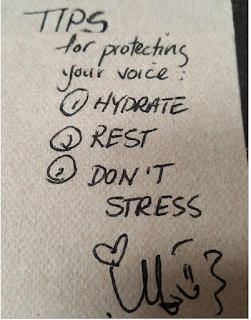 TIPS
for protecting
your voice:
① HYDRATE
② REST
③ DON'T
STRESS